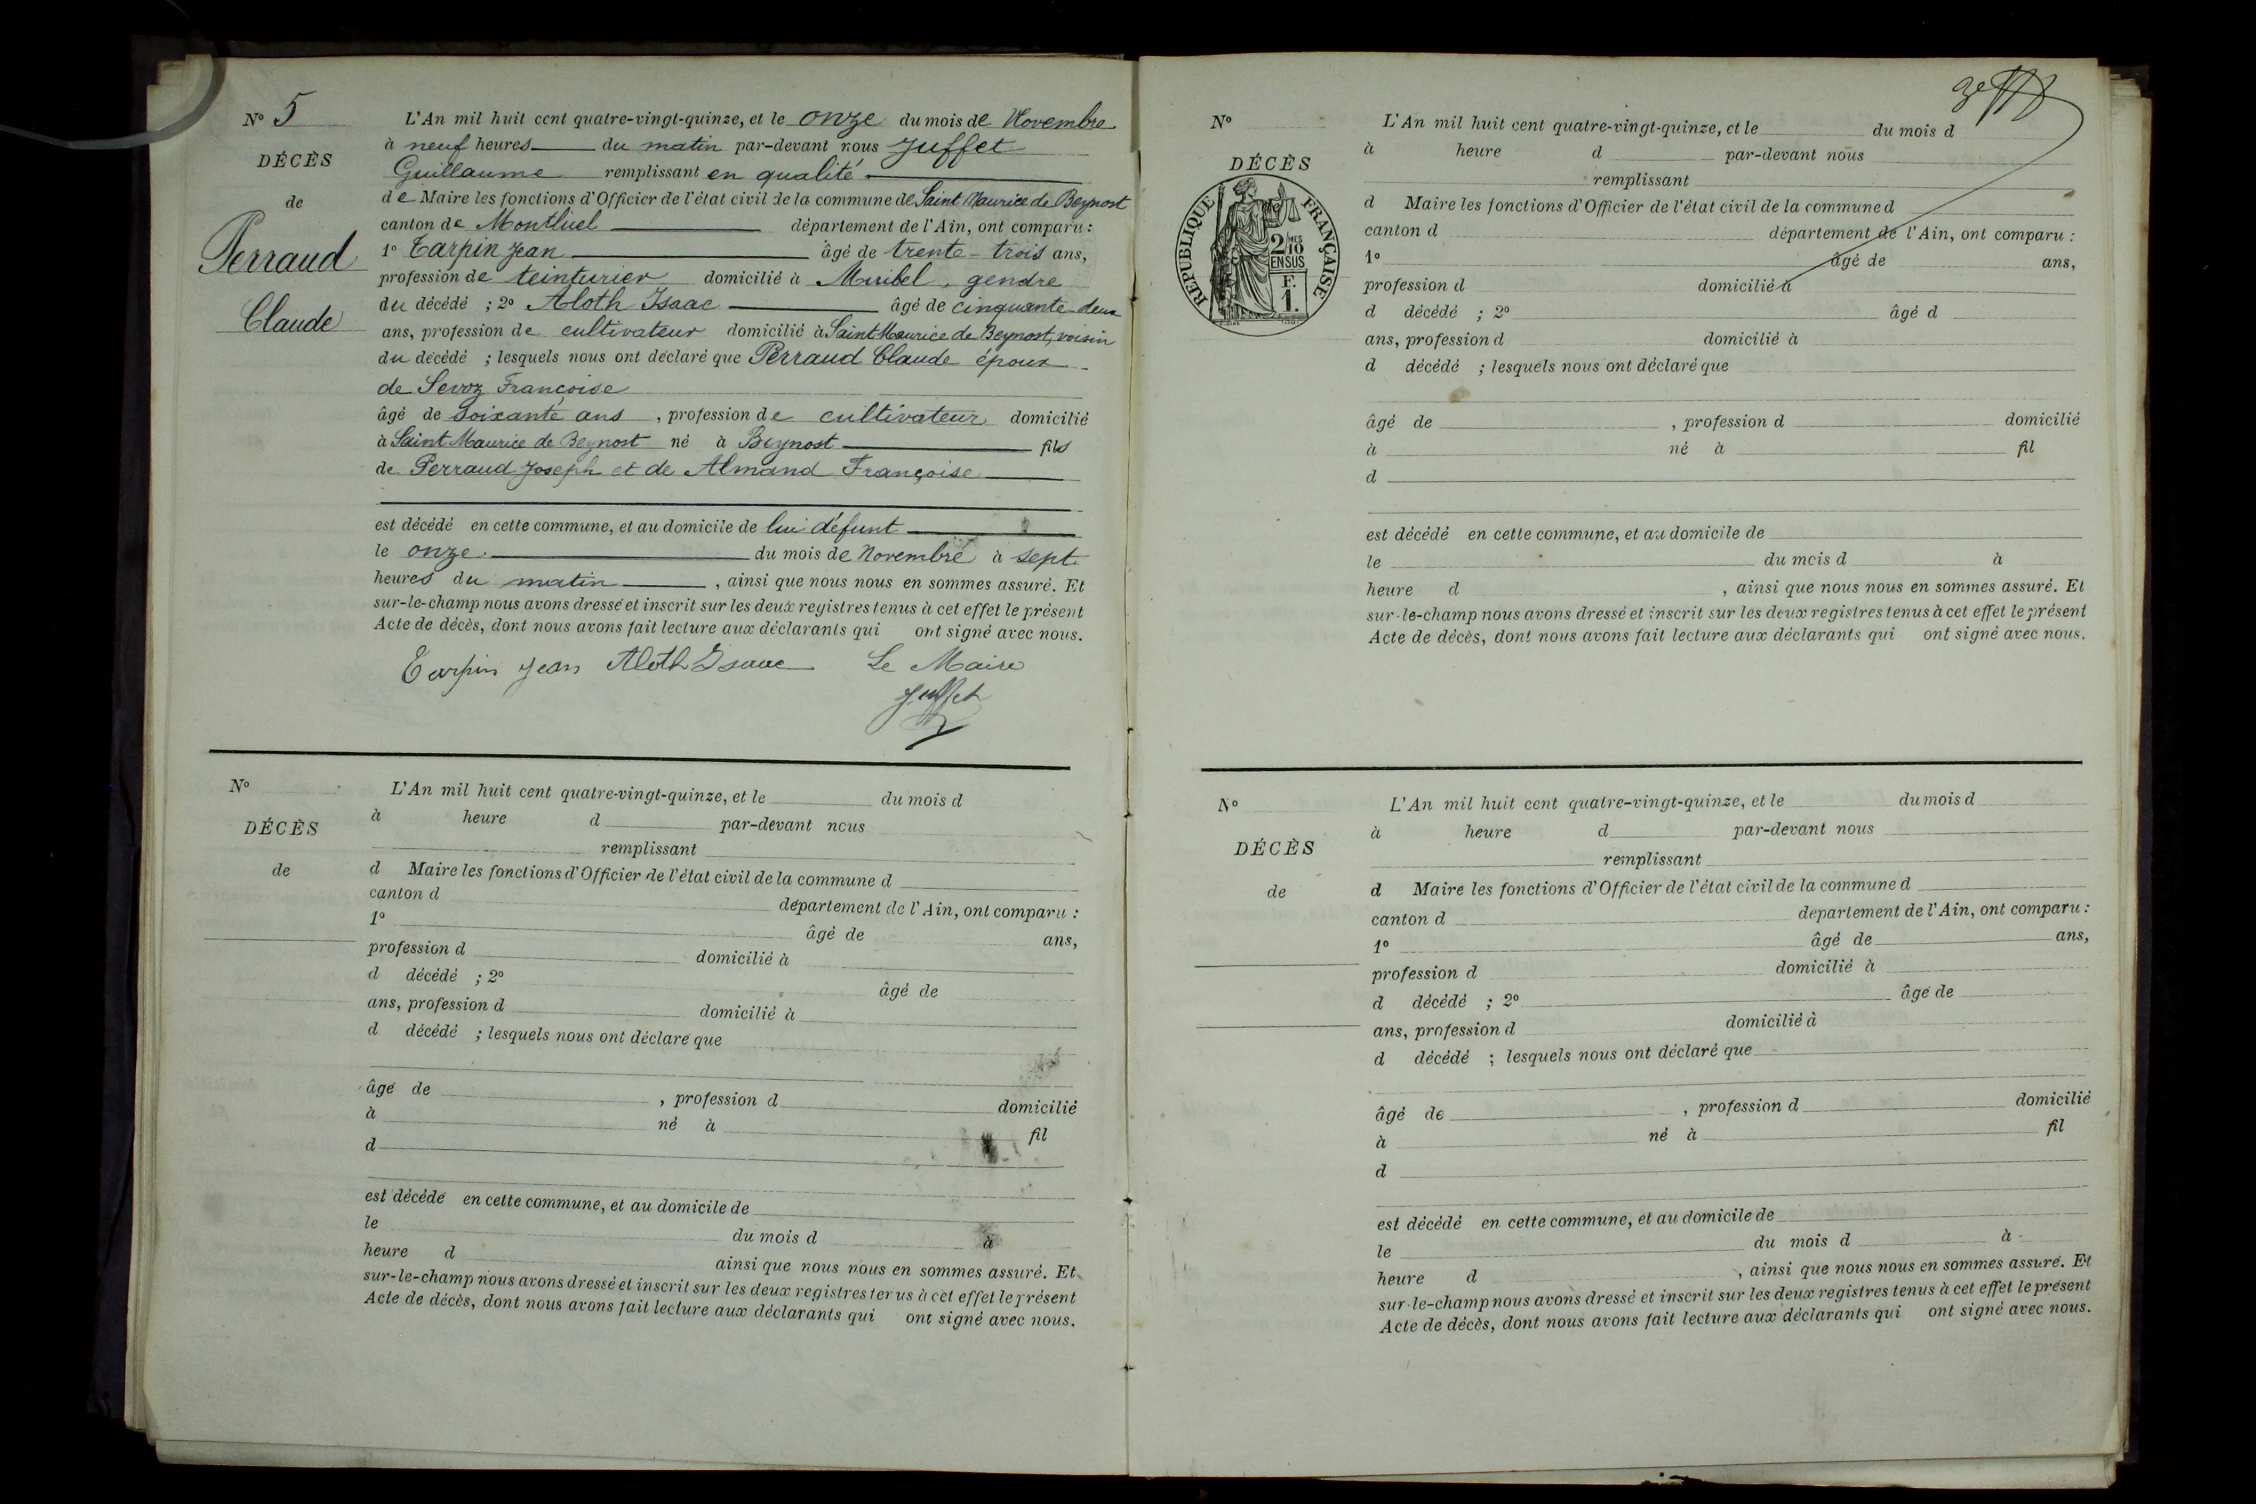 N° 5
DÉCÈS
de
Perraud
Claude
L'An mil huit cent quatre-vingt-quinze, et le onze du mois de Novembre
à neuf heures du matin par-devant nous Juffet
Guillaume remplissant en qualité
de Maire les fonctions d'Officier de l'état civil de la commune de Saint Maurice de Beynost
canton de Montluel département de l'Ain, ont comparu :
1° Tarpin Jean âgé de trente-trois ans,
profession de teinturier domicilié à Miribel, gendre
du décédé ; 2° Aloth Isaac âgé de cinquante-deux
ans, profession de cultivateur domicilié à Saint Maurice de Beynost, voisin
du décédé ; lesquels nous ont déclaré que Perraud Claude époux
de Sevoz Françoise
âgé de soixante ans , profession de cultivateur domicilié
à Saint Maurice de Beynost né à Beynost fils
de Perraud Joseph et de Almand Françoise
est décédé en cette commune, et au domicile de lui défunt
le onze du mois de Novembre à sept
heures du matin , ainsi que nous nous en sommes assuré. Et
sur-le-champ nous avons dressé et inscrit sur les deux registres tenus à cet effet le présent
Acte de décès, dont nous avons fait lecture aux déclarants qui ont signé avec nous.
Tarpin Jean Aloth Isaac Le Maire
Juffet
N°
DÉCÈS
de
L'An mil huit cent quatre-vingt-quinze, et le du mois d
à heure d par-devant nous
remplissant
d Maire les fonctions d'Officier de l'état civil de la commune d
canton d département de l'Ain, ont comparu :
1° âgé de ans,
profession d domicilié à
d décédé ; 2° âgé de
ans, profession d domicilié à
d décédé ; lesquels nous ont déclaré que
âgé de , profession d domicilié
à né à fil
d
est décédé en cette commune, et au domicile de
le du mois d à
heure d ainsi que nous nous en sommes assuré. Et
sur-le-champ nous avons dressé et inscrit sur les deux registres tenus à cet effet le présent
Acte de décès, dont nous avons fait lecture aux déclarants qui ont signé avec nous.
N°
DÉCÈS
de
RÉPUBLIQUE FRANÇAISE
2/10MES
EN SUS
F.
1.
L'An mil huit cent quatre-vingt-quinze, et le du mois d
à heure d par-devant nous
remplissant
d Maire les fonctions d'Officier de l'état civil de la commune d
canton d département de l'Ain, ont comparu :
1° âgé de ans,
profession d domicilié à
d décédé ; 2° âgé d
ans, profession d domicilié à
d décédé ; lesquels nous ont déclaré que
âgé de , profession d domicilié
à né à fil
d
est décédé en cette commune, et au domicile de
le du mois d à
heure d , ainsi que nous nous en sommes assuré. Et
sur-le-champ nous avons dressé et inscrit sur les deux registres tenus à cet effet le présent
Acte de décès, dont nous avons fait lecture aux déclarants qui ont signé avec nous.
N°
DÉCÈS
de
L'An mil huit cent quatre-vingt-quinze, et le du mois d
à heure d par-devant nous
remplissant
d Maire les fonctions d'Officier de l'état civil de la commune d
canton d département de l'Ain, ont comparu :
1° âgé de ans,
profession d domicilié à
d décédé ; 2° âgé de
ans, profession d domicilié à
d décédé ; lesquels nous ont déclaré que
âgé de , profession d domicilié
à né à fil
d
est décédé en cette commune, et au domicile de
le du mois d à
heure d , ainsi que nous nous en sommes assuré. Et
sur-le-champ nous avons dressé et inscrit sur les deux registres tenus à cet effet le présent
Acte de décès, dont nous avons fait lecture aux déclarants qui ont signé avec nous.